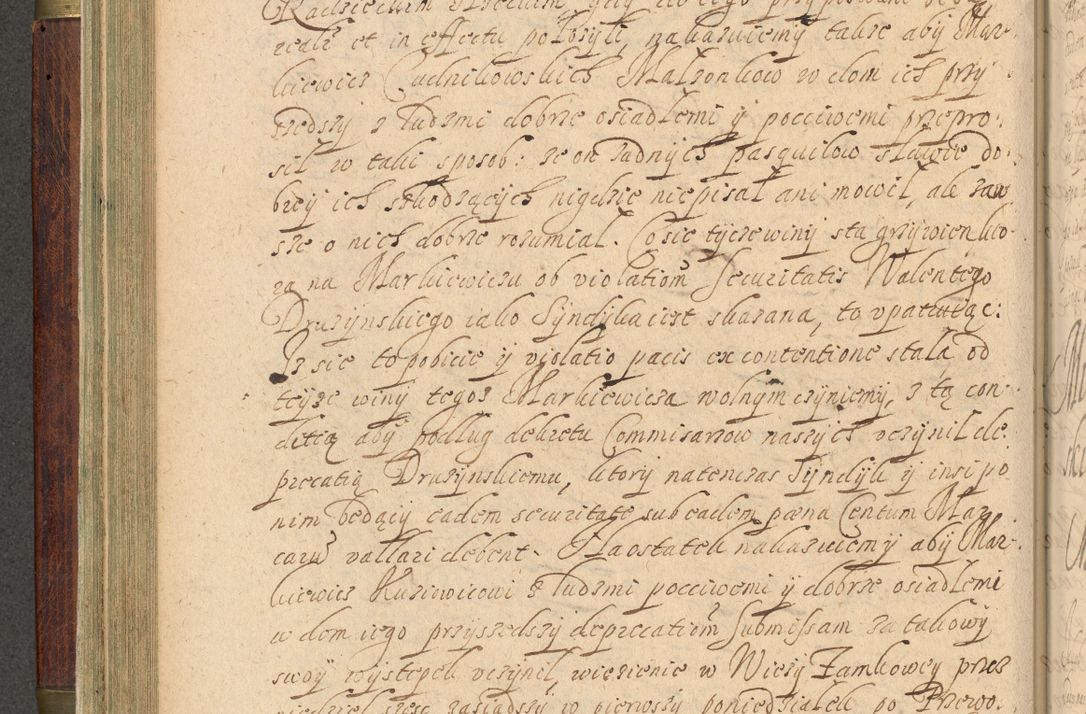 reali et in effectu położyli, nakazuiemy takze aby Mar-
kiewicz Cudnikowskich Małzonkow w dom ich przy
szedszy z ludzmi dobrze osiadłemi y pocciwemi przepro-
sił w taki sposob: ze on zadnych pasquilow sławie do-
brey ich szkodzących nigdzie nie pisał ani mowił, ale zaw
sze o nich dobrze rozumiał. Co sie tycze winy sta grzywien kto-
ra na Markiewiczu ob violationem securitatis Walentego
Druzynskiego iako Syndyka iest skazana, to vpatruiąc:
Iz sie to pobicie y violatio pacis ex contentione stała, od
teyze winy tegoz Markiewicza wolnym czyniemy, z tą con-
ditią aby podług dekretu Commisarzow naszych vczynił de-
precatią Druzynskiemu, ktory natenczas Syndyk y inszi po
nim będący eadem securitate sub eadem pæna Centum Mar
carum vallari debent. Na ostatek nakazuiemy aby Mar-
kiewicz Kuziewicowi z ludzmi pocciwemi y dobrze osiadłemi
w dom iego przyszedszy deprecationem submissam za takowy
swoy występek vczynił, więzienie w Wiezy Zamkowey przez
niedziel szesc zasiadszy w pierwszy poniedziałek po Przewo-